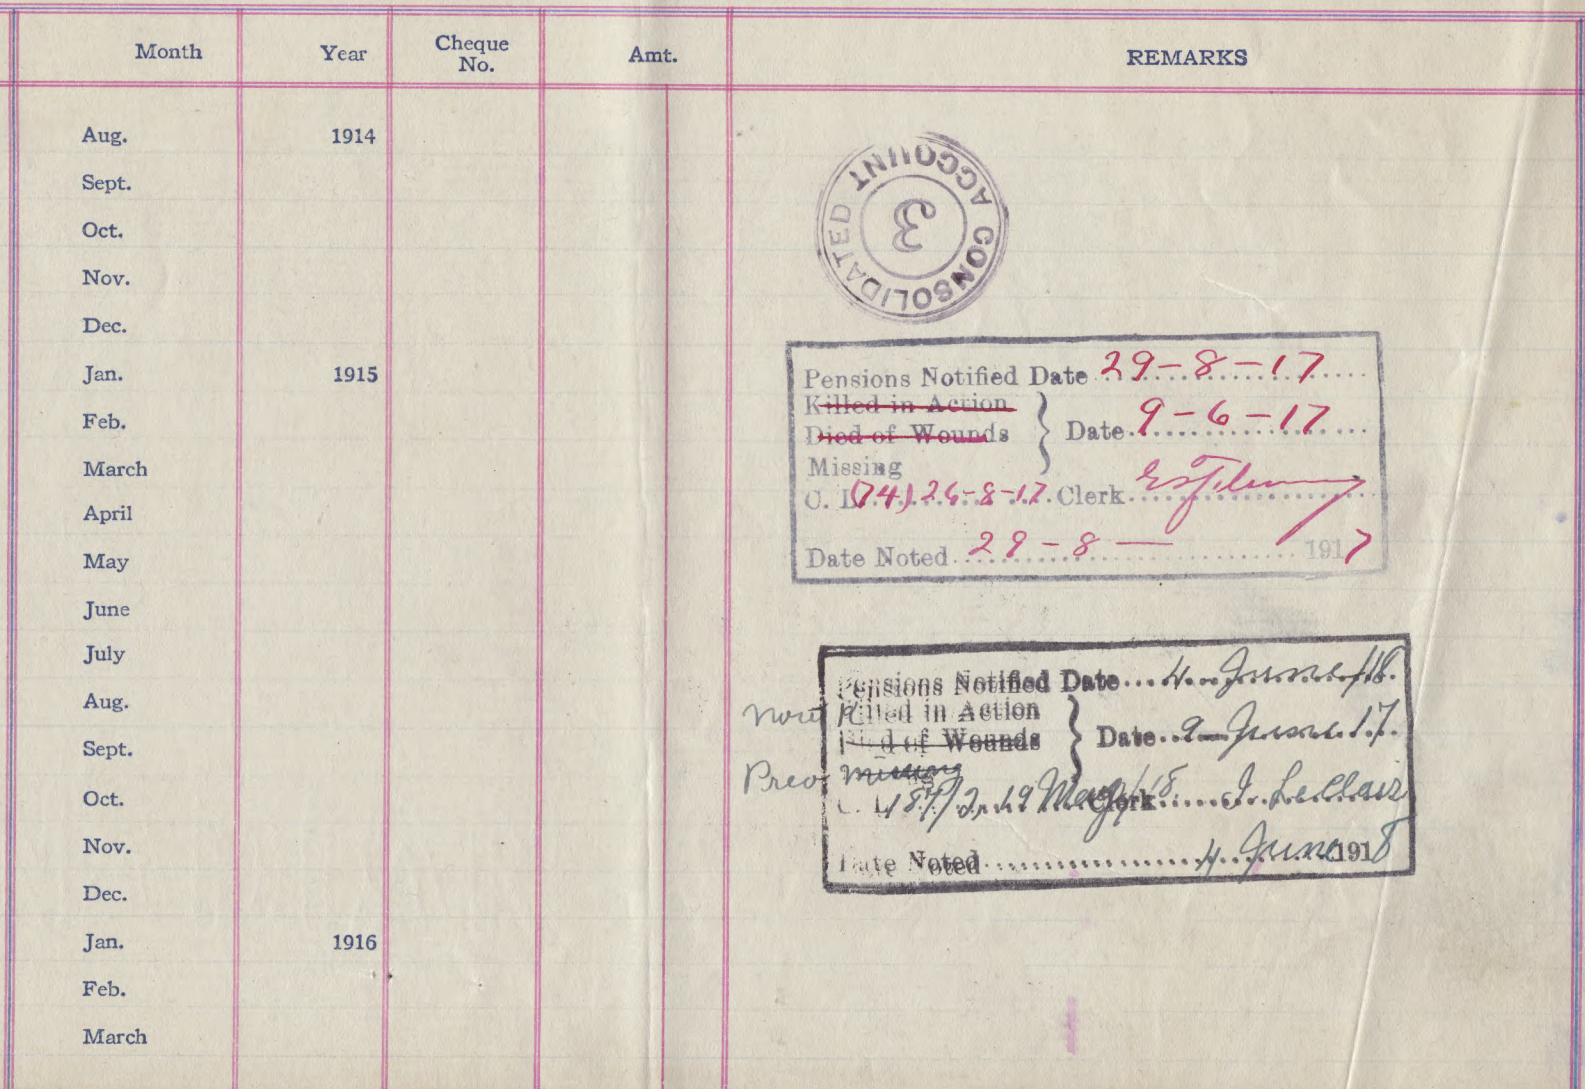 Month Year Cheque No. Amt. REMARKS
Aug. 1914
Sept.
Oct.
Nov.
Dec.
Jan. 1915
Feb.
March
April
May
June
July
Aug.
Sept.
Oct.
Nov.
Dec.
Jan. 1916
Feb.
March
CONSOLIDATED ACCOUNT
3
Pensions Notified Date 29-8-17
Killed in Action
Died of Wounds } Date 9-6-17
Missing
C. L. (74) 26-8-17 Clerk
Date Noted 29-8- 1917
Pensions Notified Date 4 June/18.
Now Killed in Action
Died of Wounds } Date 9 June 17.
Prev Missing
C. L. 19 May/18 Clerk J. LeClair
Date Noted 4 June 1918